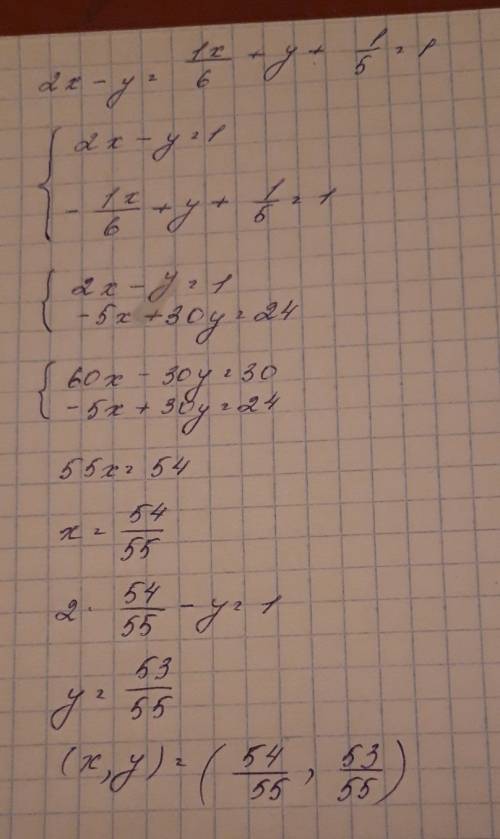 2x - y = 1x/6 + y + 1/5 = 1
2x - y = 1
- 1x/6 + y + 1/5 = 1
2x - y = 1
-5x + 30y = 24
60x - 30y = 30
-5x + 30y = 24
55x = 54
x = 54/55
2 · 54/55 - y = 1
y = 53/55
(x, y) = (54/55, 53/55)